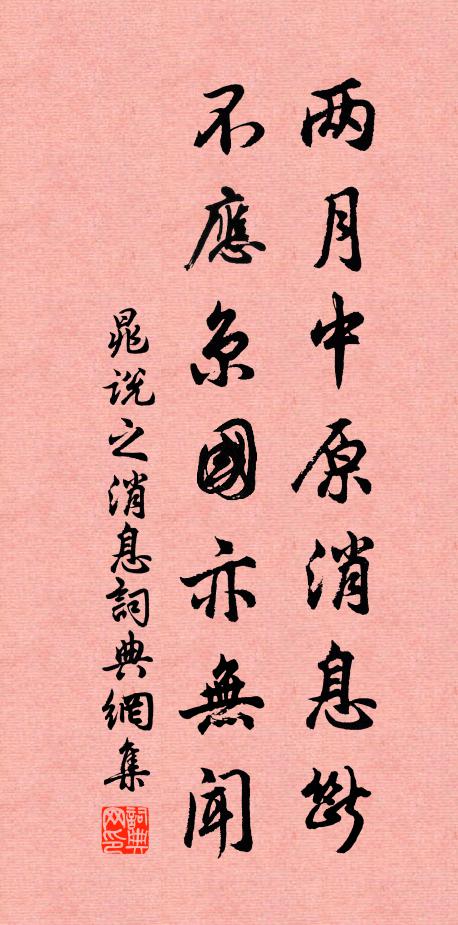 两月中原消息断
不應京國亦無聞
晁説之消息詞典網集
詞典网印